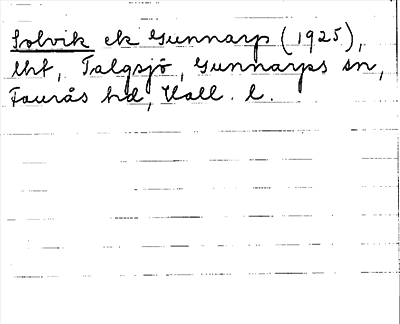 Solvik ek Gunnarp (1925),
lht, Talgsjö, Gunnarps sn,
Faurås hd, Hall. l.